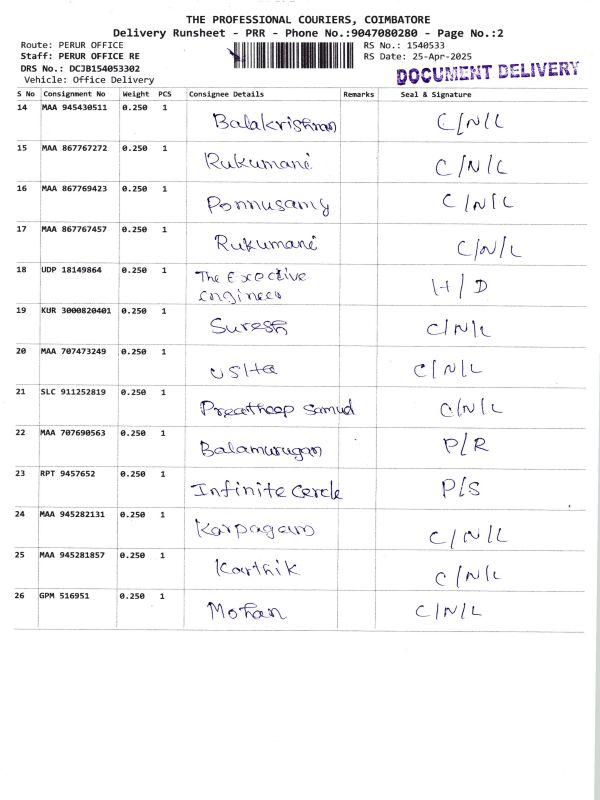 THE PROFESSIONAL COURIERS, COIMBATORE
Delivery Runsheet - PRR - Phone No.:9047080280 - Page No.:2
Route: PERUR OFFICE RS No.: 1540533
Staff: PERUR OFFICE RE RS Date: 25-Apr-2025
DRS No.: DCJB154053302
Vehicle: Office Delivery
DOCUMENT DELIVERY
S No Consignment No Weight PCS Consignee Details Remarks Seal & Signature
14 MAA 945430511 0.250 1 Balakrishnan C/N/L
15 MAA 867767272 0.250 1 Rukumani C/N/L
16 MAA 867769423 0.250 1 Ponnusamy C/N/L
17 MAA 867767457 0.250 1 Rukumani C/N/L
18 UDP 18149864 0.250 1 The Exective H/D
engineer
19 KUR 3000820401 0.250 1 Suresh C/N/L
20 MAA 707473249 0.250 1 C/N/L
21 SLC 911252819 0.250 1 Preatheep Samud C/N/L
22 MAA 707690563 0.250 1 Balamurugan P/R
23 RPT 9457652 0.250 1 Infinite Cercle P/S
24 MAA 945282131 0.250 1 Karpagam C/N/L
25 MAA 945281857 0.250 1 Karthik C/N/L
26 GPM 516951 0.250 1 Mohan C/N/L